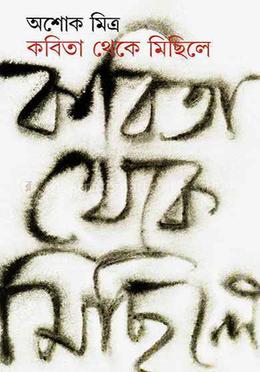 অশোক মিত্র
কবিতা থেকে মিছিলে
কবিতা
থেকে
মিছিলে